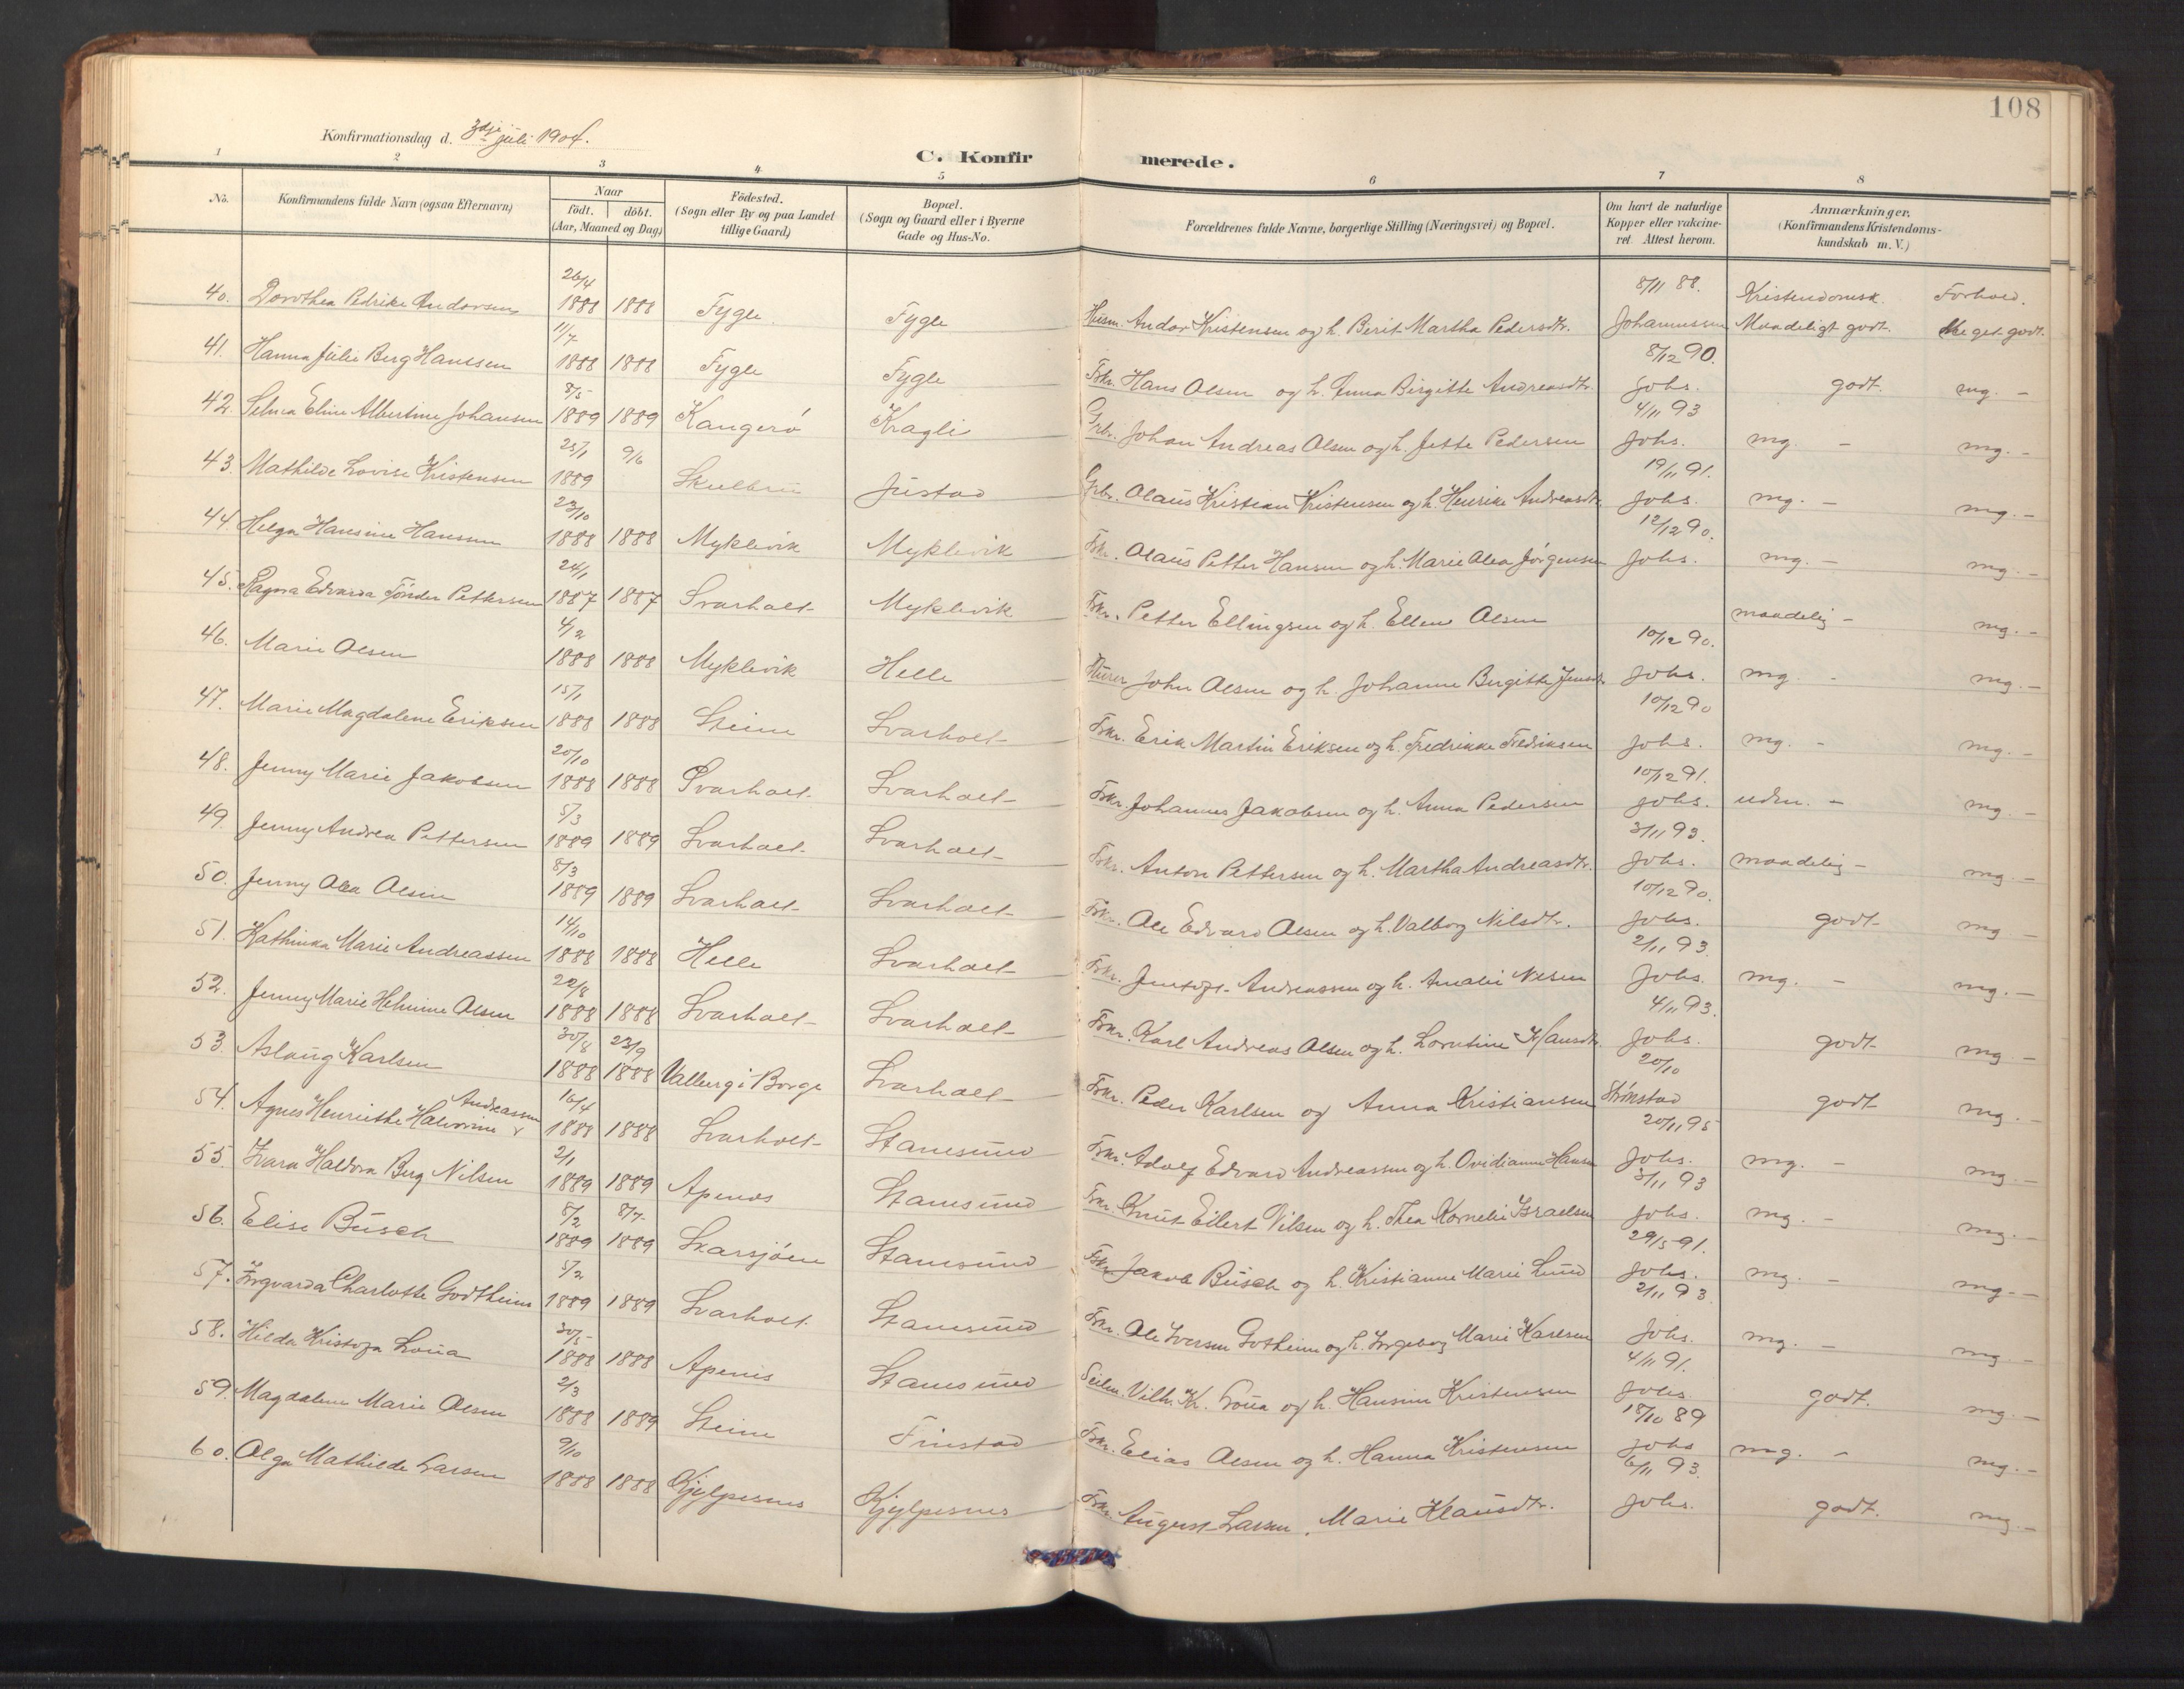 108
Konfirmationsdag d. 3dje juli 1904.
C. Konfirmerede.
1 2 3 4 5 6 7 8
No. Konfirmandens fulde Navn (ogsaa Efternavn) Naar födt. döbt. (Aar, Maaned og Dag) Födested. (Sogn eller By og paa Landet tillige Gaard) Bopæl. (Sogn og Gaard eller i Byerne Gade og Hus-No. Forældrenes fulde Navne, borgerlige Stilling (Næringsvei) og Bopæl. Om havt de naturlige Kopper eller vakcineret. Attest herom. Anmærkninger. (Konfirmandens Kristendomskundskab m. V.)
40. Dorothea Pedrike Andorsen 26/4 1888 1888 Fygle Fygle Husm. Andor Kristensen og h. Berit Martha Pedersdtr. 8/11 88. Johannessen Kristendomsk. Maadeligt godt. Forhold. Meget godt.
41. Hanna Julie Berg Hanssen 11/7 1888 1888 Fygle Fygle Fskr. Hans Olsen og h. Anna Birgitte Andreasdtr. 8/12 90. Johs. godt. mg. -
42. Selma Eline Albertine Johansen 8/5 1889 1889 Kangerö Kragli Grbr. Johan Andreas Olsen og h. Jette Pedersen 4/11 93 Johs. mg. - mg. -
43. Mathilde Lovise Kristensen 25/1 1889 9/6 Skulbru Justad Grbr. Olaus Kristian Kristensen og h. Henrike Andreasdtr. 19/11 91. Johs. mg. - mg. -
44. Helga Hansine Hanssen 23/10 1888 1888 Myklevik Myklevik Fskr. Olaus Petter Hansen og h. Marie Olea Jörgensen 12/12 90. Johs. mg. - mg. -
45. Ragna Edvarda Tönder Pettersen 24/1 1887 1887 Svarholt Myklevik Fskr. Petter Ellingsen og h. Ellen Olsen maadelig - mg. -
46. Marie Olsen 4/2 1888 1888 Myklevik Helle John Olsen og h. Johanne Birgitte Jensdtr. 10/12 90. Johs. mg. - mg. -
47. Marie Magdalene Eriksen 15/1 1888 1888 Steine Svarholt Fskr. Erik Martin Eriksen og h. Fredrikke Fredriksen 10/12 90 Johs. mg. - mg. -
48. Jenny Marie Jakobsen 20/10 1888 1888 Svarholt Svarholt Fskr. Johannes Jakobsen og h. Anna Pedersen 10/12 91. Johs. udm. - mg. -
49. Jenny Andrea Pettersen 5/3 1889 1889 Svarholt Svarholt Fskr. Anton Pettersen og h. Martha Andreasdtr. 3/11 93. Johs. maadelig - mg. -
50. Jenny Olea Olsen 8/3 1889 1889 Svarholt Svarholt Fskr. Ole Edvard Olsen og h. Valborg Nilsdtr. 10/12 90. Johs. godt mg -
51. Kathinka Marie Andreassen 14/10 1888 1888 Helle Svarholt Fskr. Andreassen og h. Amalie Nilsen 2/11 93 Johs. mg. - mg. -
52. Jenny Marie Helmine Olsen 22/8 1888 1888 Svarholt Svarholt Fskr. Karl Andreas Olsen og h. Lorntine Hansdtr. 4/11 93. Johs. godt mg -
53. Aslaug Karlsen 30/8 1888 23/9 1888 Valberg i Borge Svarholt Fskr. Peder Karlsen og Anna Kristiansen 20/10 Strönstad godt mg. -
54. Agnes Henriette Halvorine Andreassen 16/4 1888 1888 Svarholt Stamsund Fskr. Adolf Edvard Andreassen og h. Ovidianne Hansen 20/11 95 Johs. mg. - mg. -
55. Ivara Haldora Berg Nilsen 2/1 1889 1889 Apenes Stamsund Fskr. Knut Eilert Nilsen og h. Thea Kornelie Israelsen 3/11 93 Johs. mg. - mg. -
56. Elise Busch 8/2 1889 8/7 1889 Skarsjöen Stamsund Fskr Jakob Busch og h. Kristianne Marie Lund 29/5 91. Johs. mg. - mg. -
57. Ingvarda Charlotte Godtheim 5/2 1889 1889 Svarholt Stamsund Fskr. Ole Iversen Gotheim og h. Ingeborg Marie Karlsen 2/11 93 Johs. mg. - mg. -
58. Hilda Kristofa Loua 30/5 1888 1888 Apenes Stamsund Seilm. Vilh. Kr. Loua og h. Hansine Kristensen 4/11 91. Johs. godt. mg. -
59. Magdalene Marie Olsen 2/3 1888 1889 Steine Finstad Fskr. Elias Olsen og h. Hanna Kristensen 18/10 89 Johs mg. - mg. -
60. Olga Mathilde Larsen 9/10 1888 1888 Kjylpesnes Kjylpesnes Fskr. August Larsen, Marie Klausdtr. 6/11 93. Johs. godt. mg. -